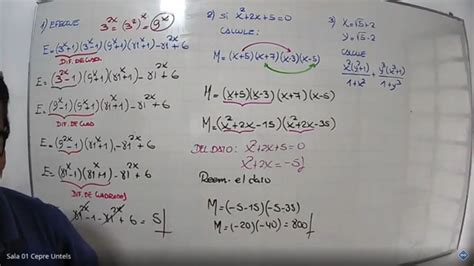 1) EFECTUE 3^{2x} = (3^2)^x = 9^x
E=(3^x+1)(3^x-1)(9^x+1)(81^x+1)-81^{2x}+6
DIF. DE CUAD.
E=(3^{2x}-1)(9^x+1)(81^x+1)-81^{2x}+6
E=(9^x-1)(9^x+1)(81^x+1)-81^{2x}+6
DIF. DE CUAD.
E=(9^{2x}-1)(81^x+1)-81^{2x}+6
E=(81^x-1)(81^x+1)-81^{2x}+6
DIF. DE CUADRADOS
81^{2x}-1-81^{2x}+6=5
2) si x^2+2x+5=0
CALCULE:
M=(x+5)(x+7)(x-3)(x-5)
M=(x+5)(x-3)(x+7)(x-5)
M=(x^2+2x-15)(x^2+2x-35)
DEL DATO: x^2+2x+5=0
x^2+2x=-5
Reem. el dato
M=(-5-15)(-5-35)
M=(-20)(-40)=800
3) x=√5+2
y=√5-2
CALCULE
\frac{x^2(y^2+1)}{1+x^2}+\frac{y^2(x^2+1)}{1+y^2}
Sala 01 Cepre Untels